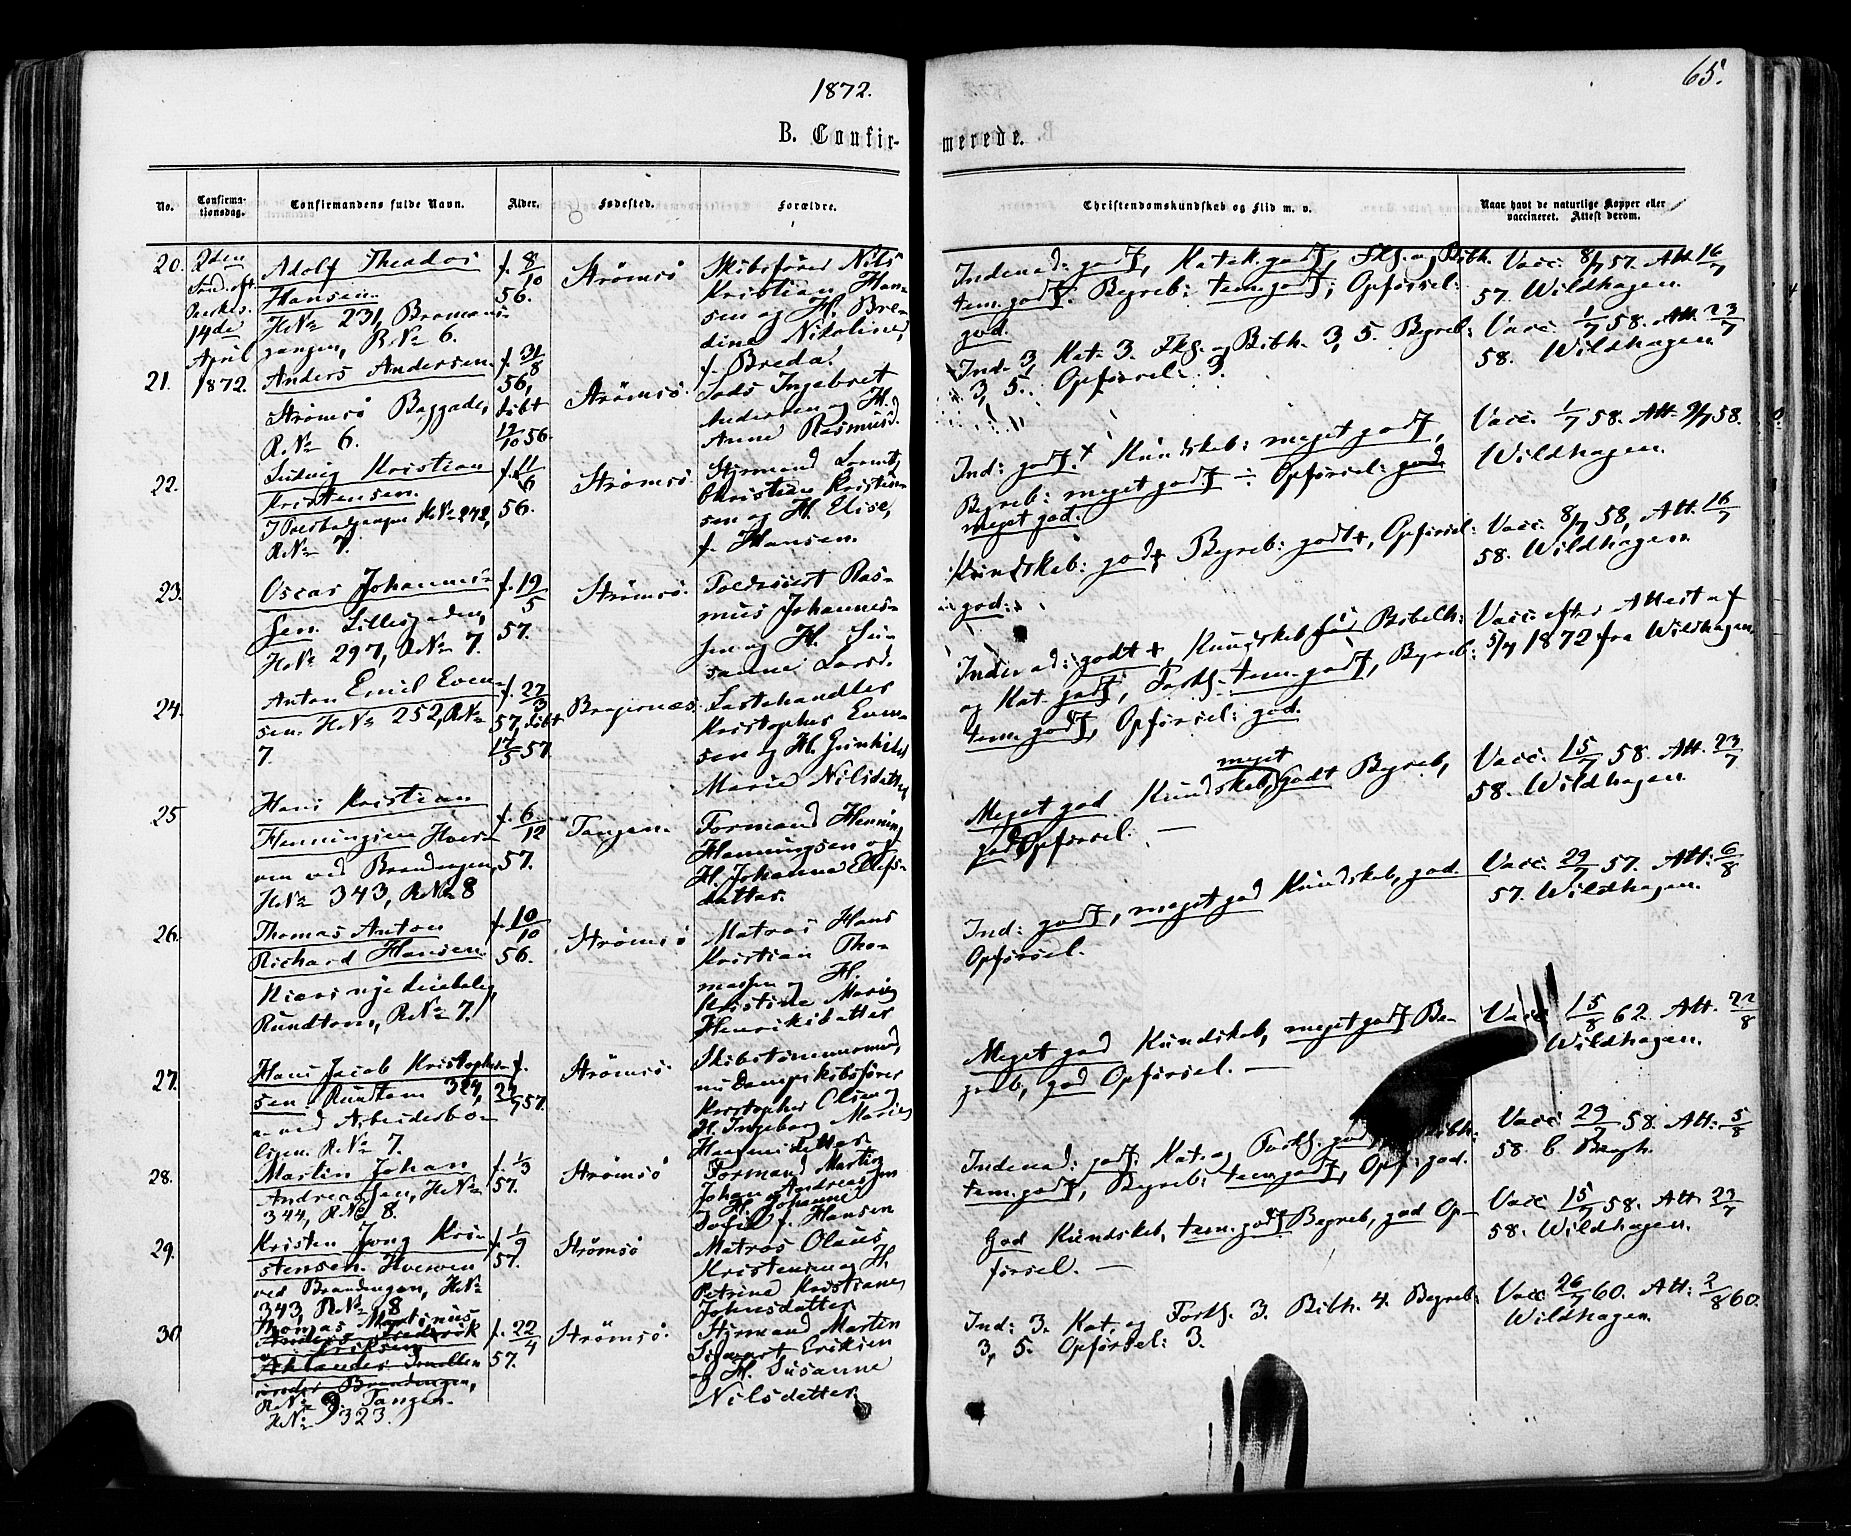 1872.
65.
B. Confir-
merede.
No.
Confirma-
tionsdag.
Confirmandens fulde Navn.
Alder.
Fødested.
Forældre.
Christendomskundskab og Flid m. v.
Naar havt de naturlige Kopper eller
vaccineret. Attest derom.
20.
2den
Sønd. eft.
Paaske.
14de
April
1872.
Adolf Theodor
Hansen.
H№ 231,
gangen, R.№ 6.
f. 8/10
56.
Strømsø
Skibsfører Nils
Kristian Han-
sen og H. Bre-
dine Nikoline,
f. Breda.
Indenad: godt, Katek. godt, Fkl. og Bibh.
tem. godt. Begreb: tem. godt; Opførsel:
god.
Vacc. 8/7 57. Att. 16/7
57. Wildhagen.
21.
Anders Andersen
Strømsø Baggade,
R.№ 6.
f. 31/8
56,
døbt
12/10 56.
Strømsø.
Ingebret
Andersen og H.
Anne Rasmusd.
Ind. 3, Kat. 3. Fkl. og Bibh. 3,5. Begreb:
3,5. Opførsel: 3.
Vacc. 1/7 58. Att. 23/7
58. Wildhagen
22.
Ludvig Kristian
Kristensen.
H№ 272,
R.№ 7.
f. 11/6
56.
Strømsø.
Styrmand
Christian Kristen-
sen og H. Elise,
f. Hansen.
Ind: godt. + Kundskab: meget godt,
Begreb: meget godt ÷ Opførsel: god
meget god.
Vacc. 1/7 58. Att. 9/7 58.
Wildhagen.
23.
Oscar Johannes-
sen. Lillegaden,
H№ 297, R.№ 7.
f. 19/5
57.
Strømsø.
Ras-
mus Johannes-
sen og H. Su-
sanne Larsd.
Kundskab: god+ Begreb: godt+, Opførsel:
god.
Vacc. 8/7 58, Att. 16/7
58. Wildhagen
24.
Anton Emil Even-
sen. H№ 252, R.№
7.
f. 27/3
57, døbt
17/5 57.
Bragernæs.
Lastehandler
Kristopher Even-
sen og H. Gunhild
Marie Nilsdatter
Indenad: godt+, Kundskab før Bibelh:
og Kat. godt, Forkl. tem. godt, Begreb:
tem. godt, Opførsel: god.
Vacc. efter Attest af
5/4 1872 fra Wildhagen
25
Hans Kristian
Henningsen
ved Brandengen,
H№ 343, R№ 8
f. 6/12
57.
Tangen.
Formand Henning
Henningsen og
H. Johanne Ellefs-
datter.
Meget god Kundskab, meget godt Begreb,
god Opførsel. —
Vacc. 15/7 58. Att. 23/7
58. Wildhagen.
26.
Thomas Anton
Richard Hansen
Rundtom, R.№ 7.
f. 10/10
56.
Strømsø
Matros Hans
Kristian Tho-
massen og H.
Kristine Marie
Henriksdatter
Ind: godt, meget god Kundskab, god
Opførsel.
Vacc: 29/7 57. Att: 6/8
57. Wildhagen.
27.
Hans Jacob Kristopher-
sen. Rundtom 324,
ved Arbeiderbo-
ligen. R.№ 7.
f.
24/7 57.
Strømsø.
Skibstømmermand,
nu Dampskibsfører
Kristopher Olsen og
H. Ingeborg Marie
Hansdatter
Meget god Kundskab, meget godt Be-
greb, god Opførsel. —
Vacc. 15/8 62. Att. 22/8
Wildhagen.
28.
Martin Johan
Andreassen, H№
344, R№ 8.
f. 1/3
57.
Strømsø
Formand Martin
Johan Andreassen
og H. Johanne
Sofie f. Hansen
Indenad: godt. Kat. og Forkl. god, Bibh:
tem. godt, Begreb: tem. godt, Opf. god.
Vacc. 29/7 58. Att: 5/8
58.
29.
Kristen Kri-
stensen.
ved Brandengen, H№
343, R№ 8
f. 1/9
57.
Strømsø
Matros Olaus
Kristensen og H.
Petrine Kristiane
Johnsdatter
God Kundskab, tem. godt Begreb, god Op-
førsel. —
Vacc. 15/7 58. Att. 23/7
58. Wildhagen.
30.
Thomas Martinus
Eriksen
under Brandengen,
R.№ 9. Tangen.
H.№ 323.
f. 22/4
57.
Strømsø.
Styrmand Martin
Sigvart Eriksen
og H. Susanne
Nilsdatter.
Ind: 3. Kat. og Forkl. 3. Bibh. 4. Begreb:
3,5. Opførsel: 3.
Vacc 26/7 60. Att: 2/8 60.
Wildhagen.